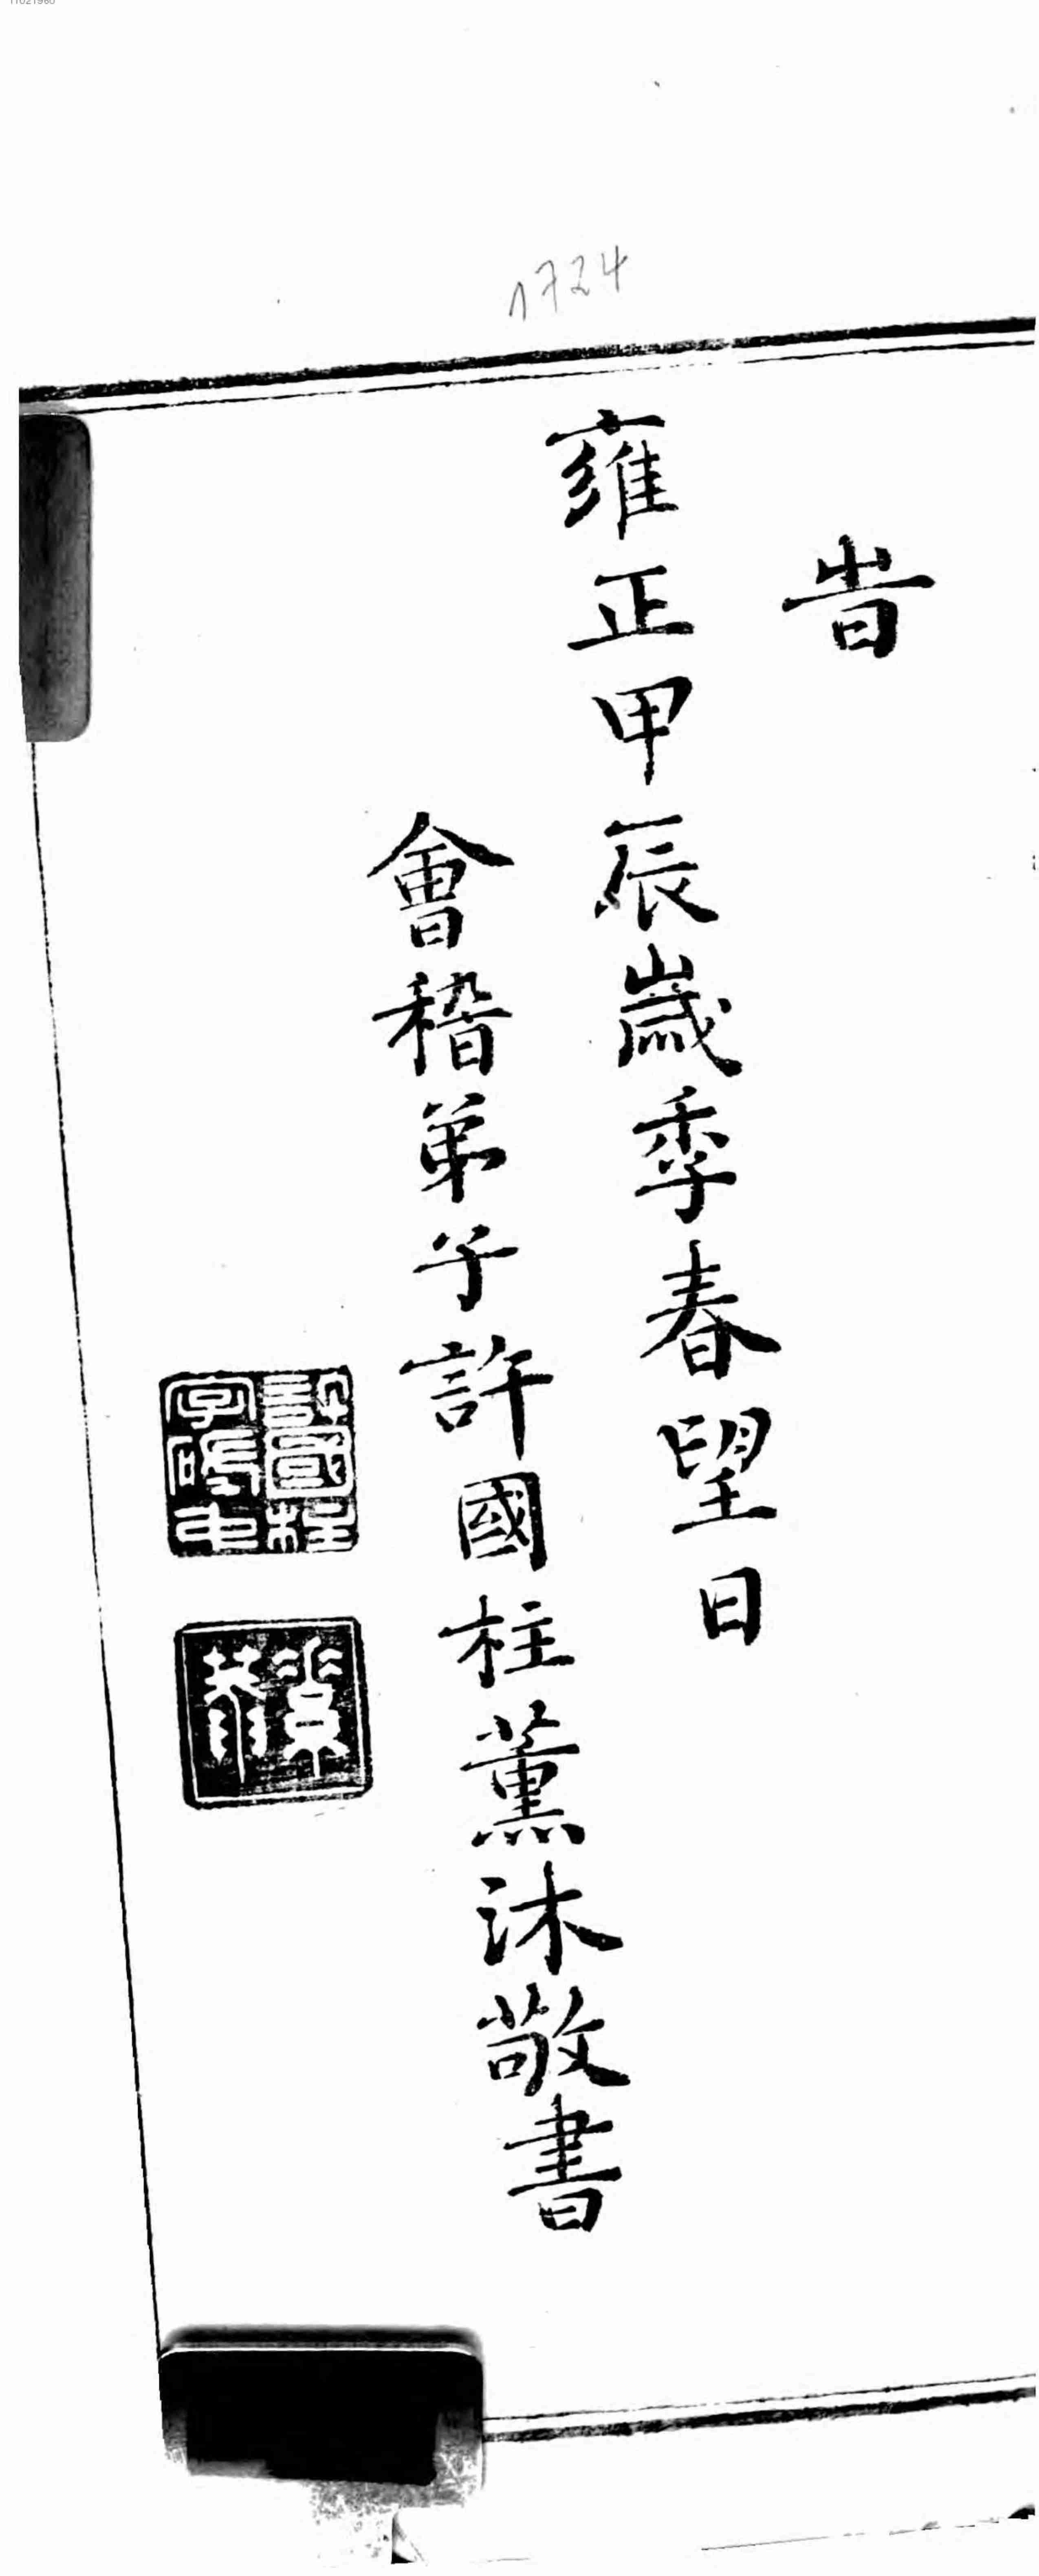 旹
雍正甲辰歲季春望日
會稽弟子許國柱薰沐敬書
1724
許國柱
11021960